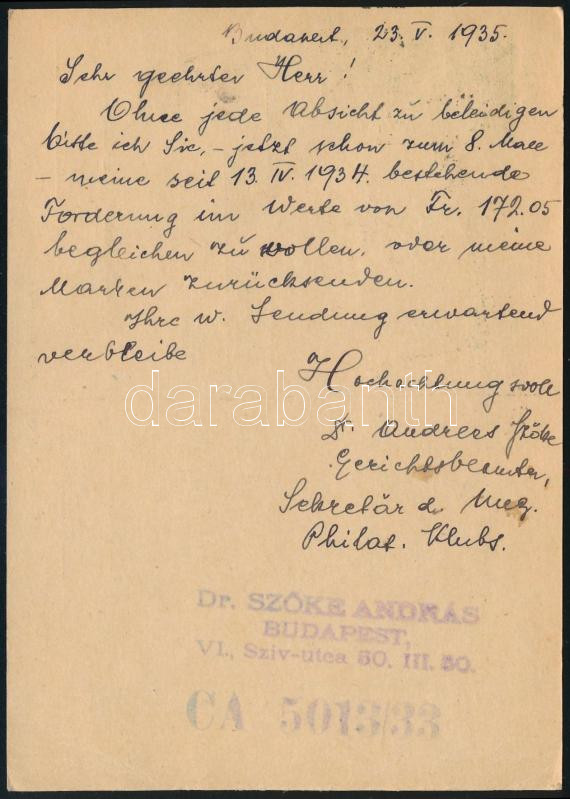 Budapest, 23. V. 1935.
Sehr geehrter Herr!
Ohne jede Absicht zu beleidigen
bitte ich Sie, – jetzt schon zum 8. Male
– meine seit 13. IV. 1934. bestehende
Forderung im Werte von Fr. 172.05
begleichen zu wollen, oder meine
Marken zurücksenden.
Ihre w. Sendung erwartend
verbleibe
Hochachtungsvoll
Dr. Andreas Szőke
Gerichtsbeamter,
Sekretär d. Ung.
Philat. Klubs.
darabanth
Dr. SZŐKE ANDRÁS
BUDAPEST,
VI., Sziv-utca 60. III. 30.
CA 5013/33